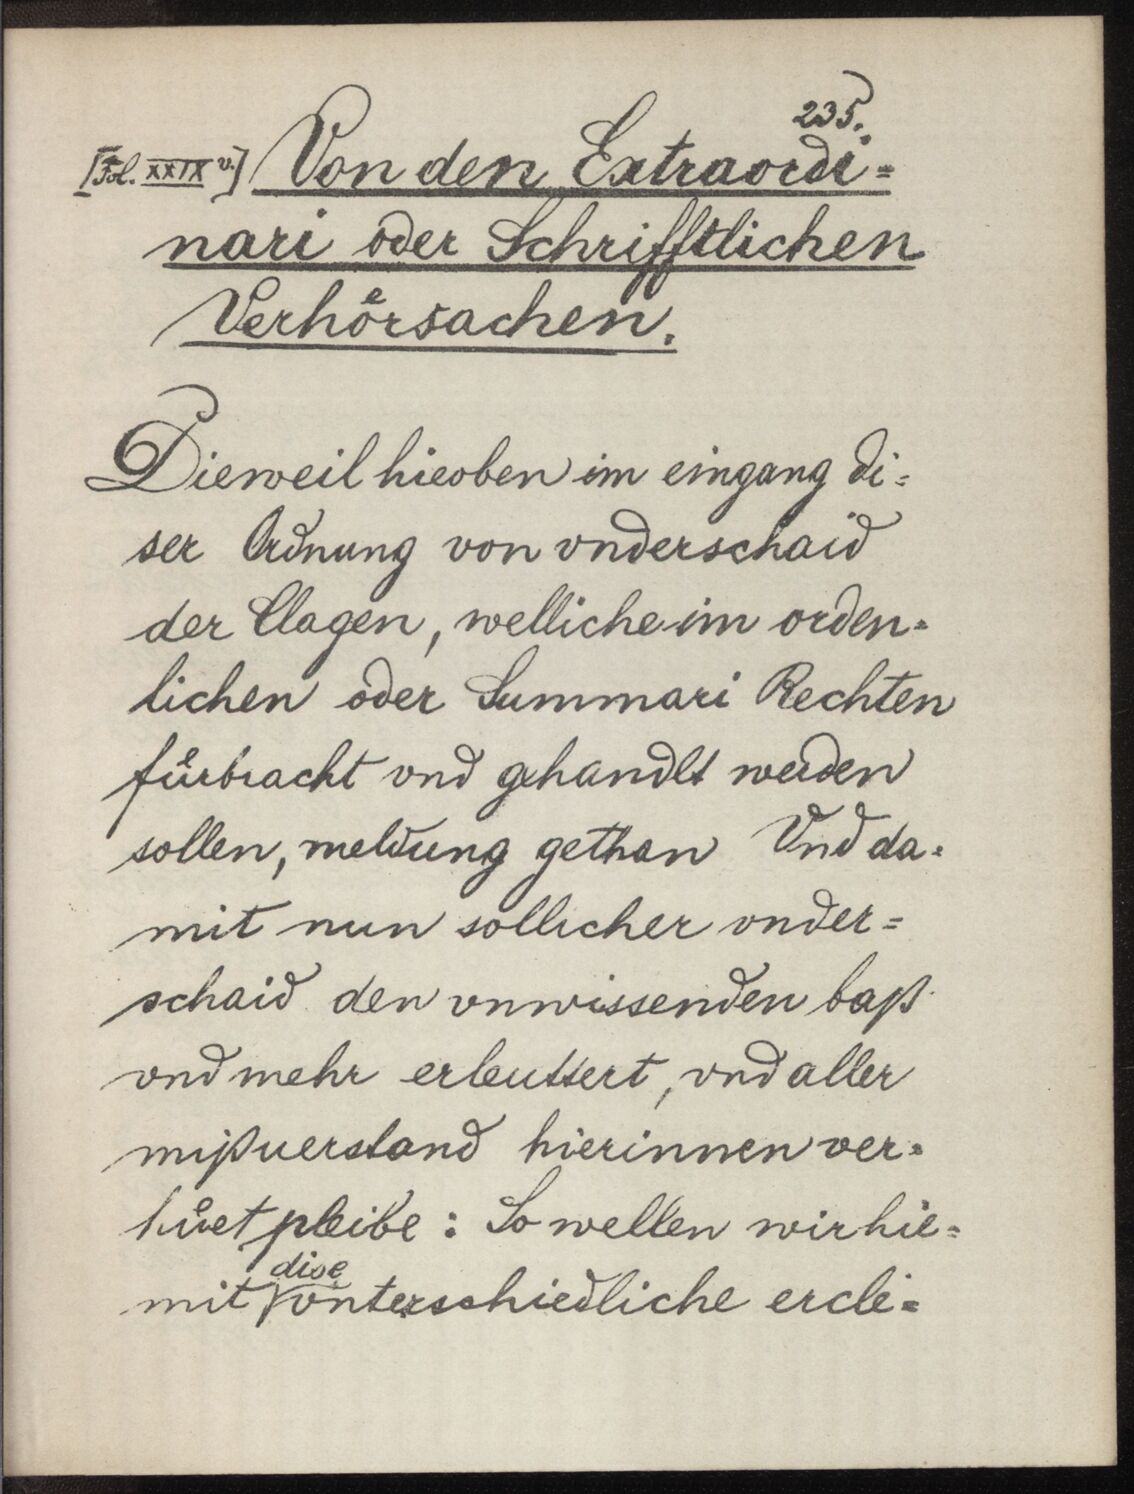 235.
[Fol. XXIX v.] Von den Extraordi=
nari oder Schrifftlichen
Verhoͤrsachen.
Dieweil hieoben im eingang di=
ser Ordnung von vnderschaid
der Clagen, welliche im orden=
lichen oder Summari Rechten
fuͤrbracht vnd gehandlt werden
sollen, meldung gethan Vnd da=
mit nun sollicher vnder=
schaid den vnwissenden baß
vnd mehr erleuttert, vnd aller
mißuerstand hierinnen ver=
huͤet pleibe: So wellen wir hie=
dise
mit vnterschiedliche ercle=